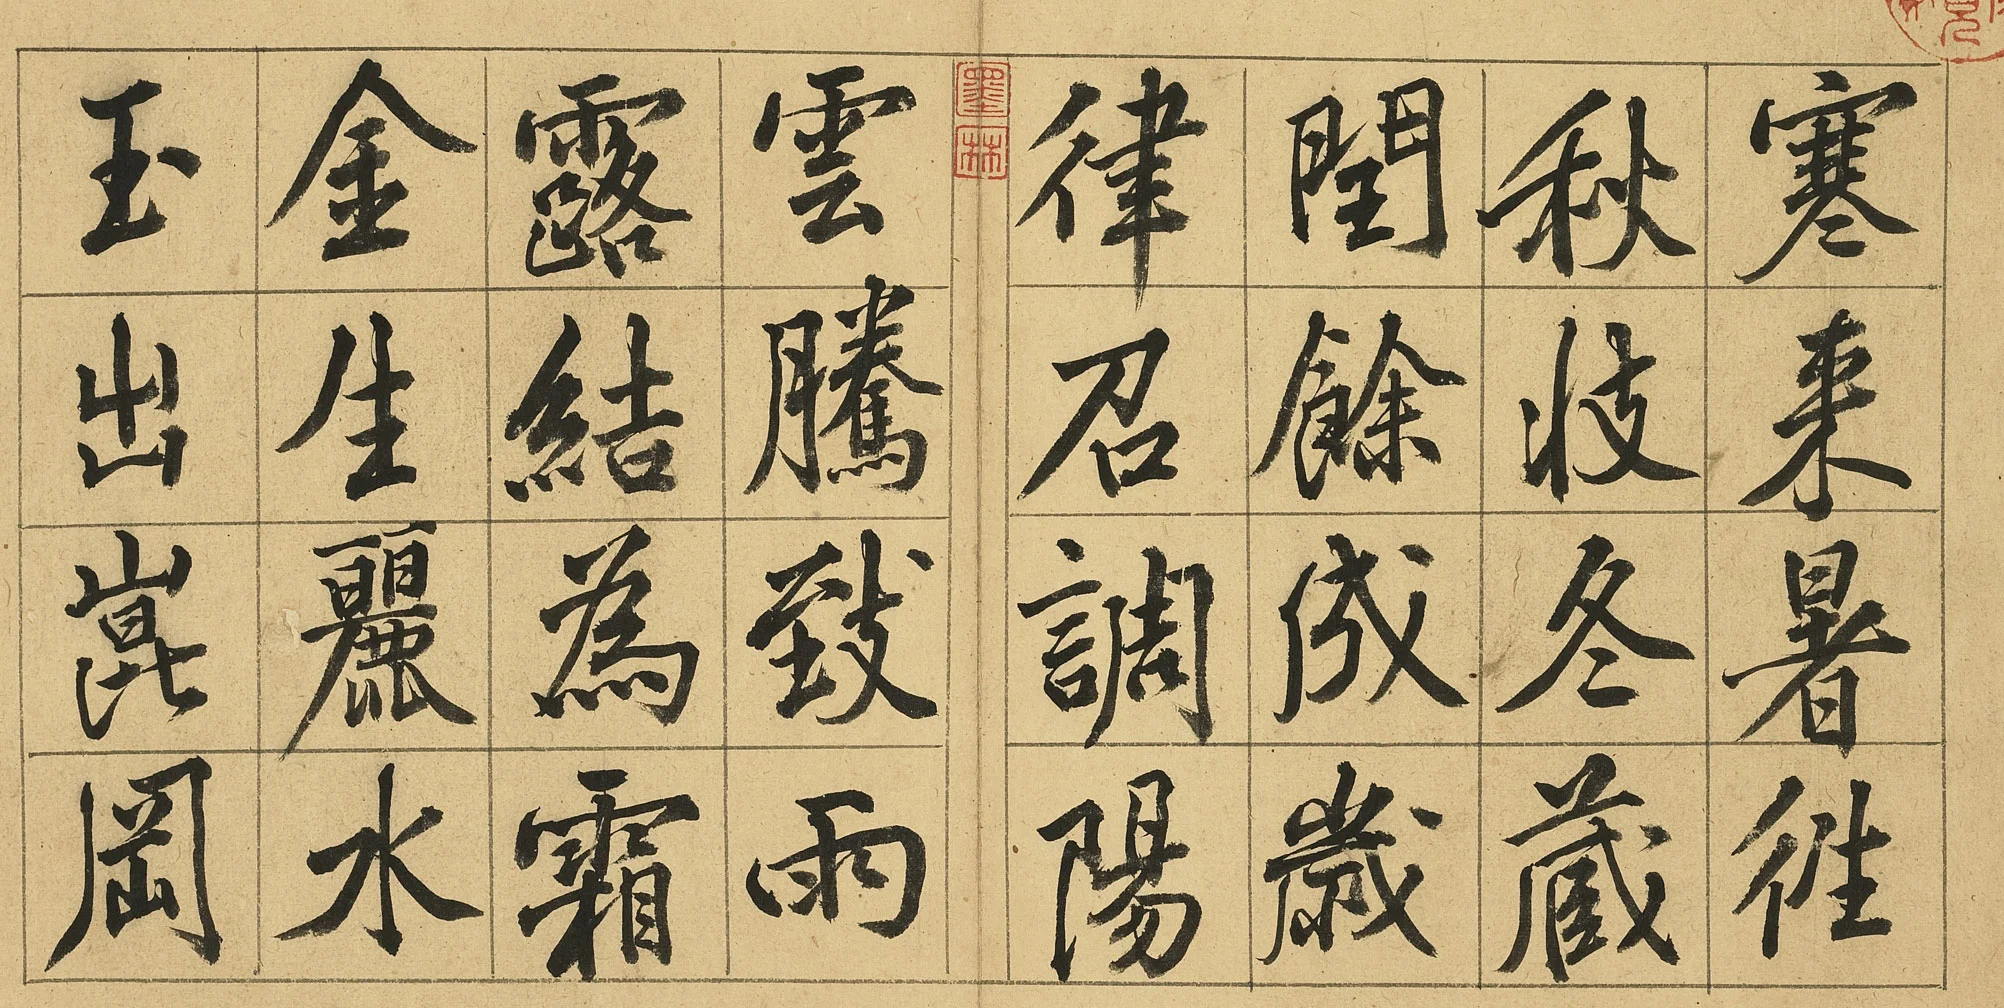 寒來暑往
秋收冬藏
閏餘成歲
律召調陽
墨林
雲騰致雨
露結為霜
金生麗水
玉出崑岡